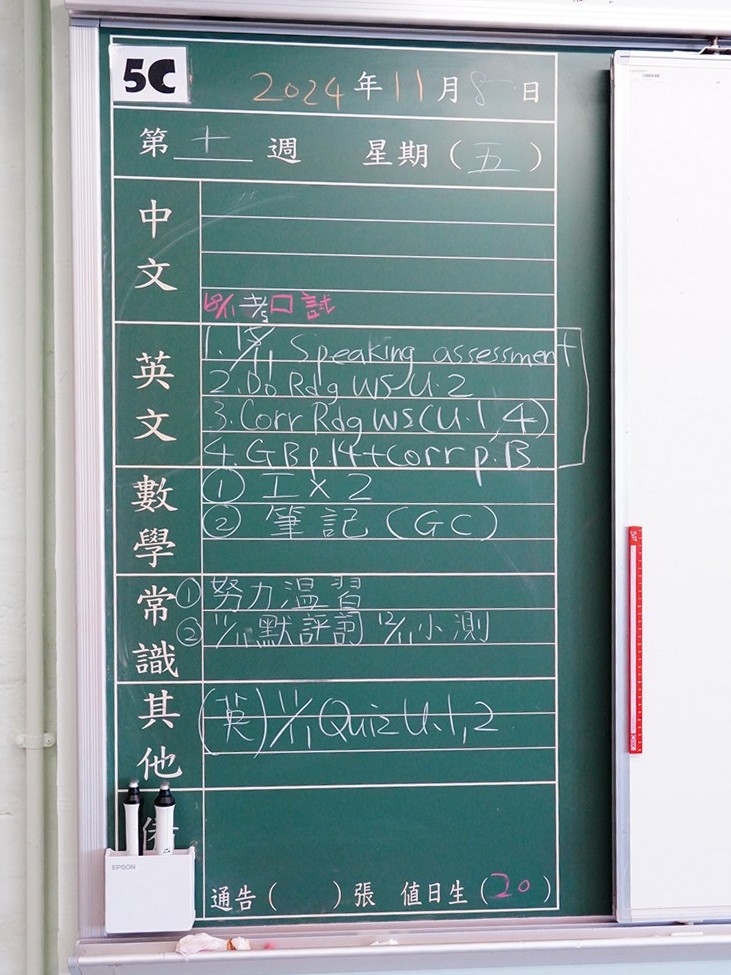 5C
2024年11月8日
第十週 星期(五)
中文
18/11 考口試
英文
1. 15/11 Speaking assessment
2. Do Rdg WS U.2
3. Corr Rdg WS (U.1, 4)
4. GB p.14 + corr p.13
數學
① 工 x 2
② 筆記 (GC)
常識
① 努力温習
② 11/11 默評詞 12/11 小測
其他
(英) 11/11 Quiz U.1, 2
EPSON
通告( )張 值日生(20)